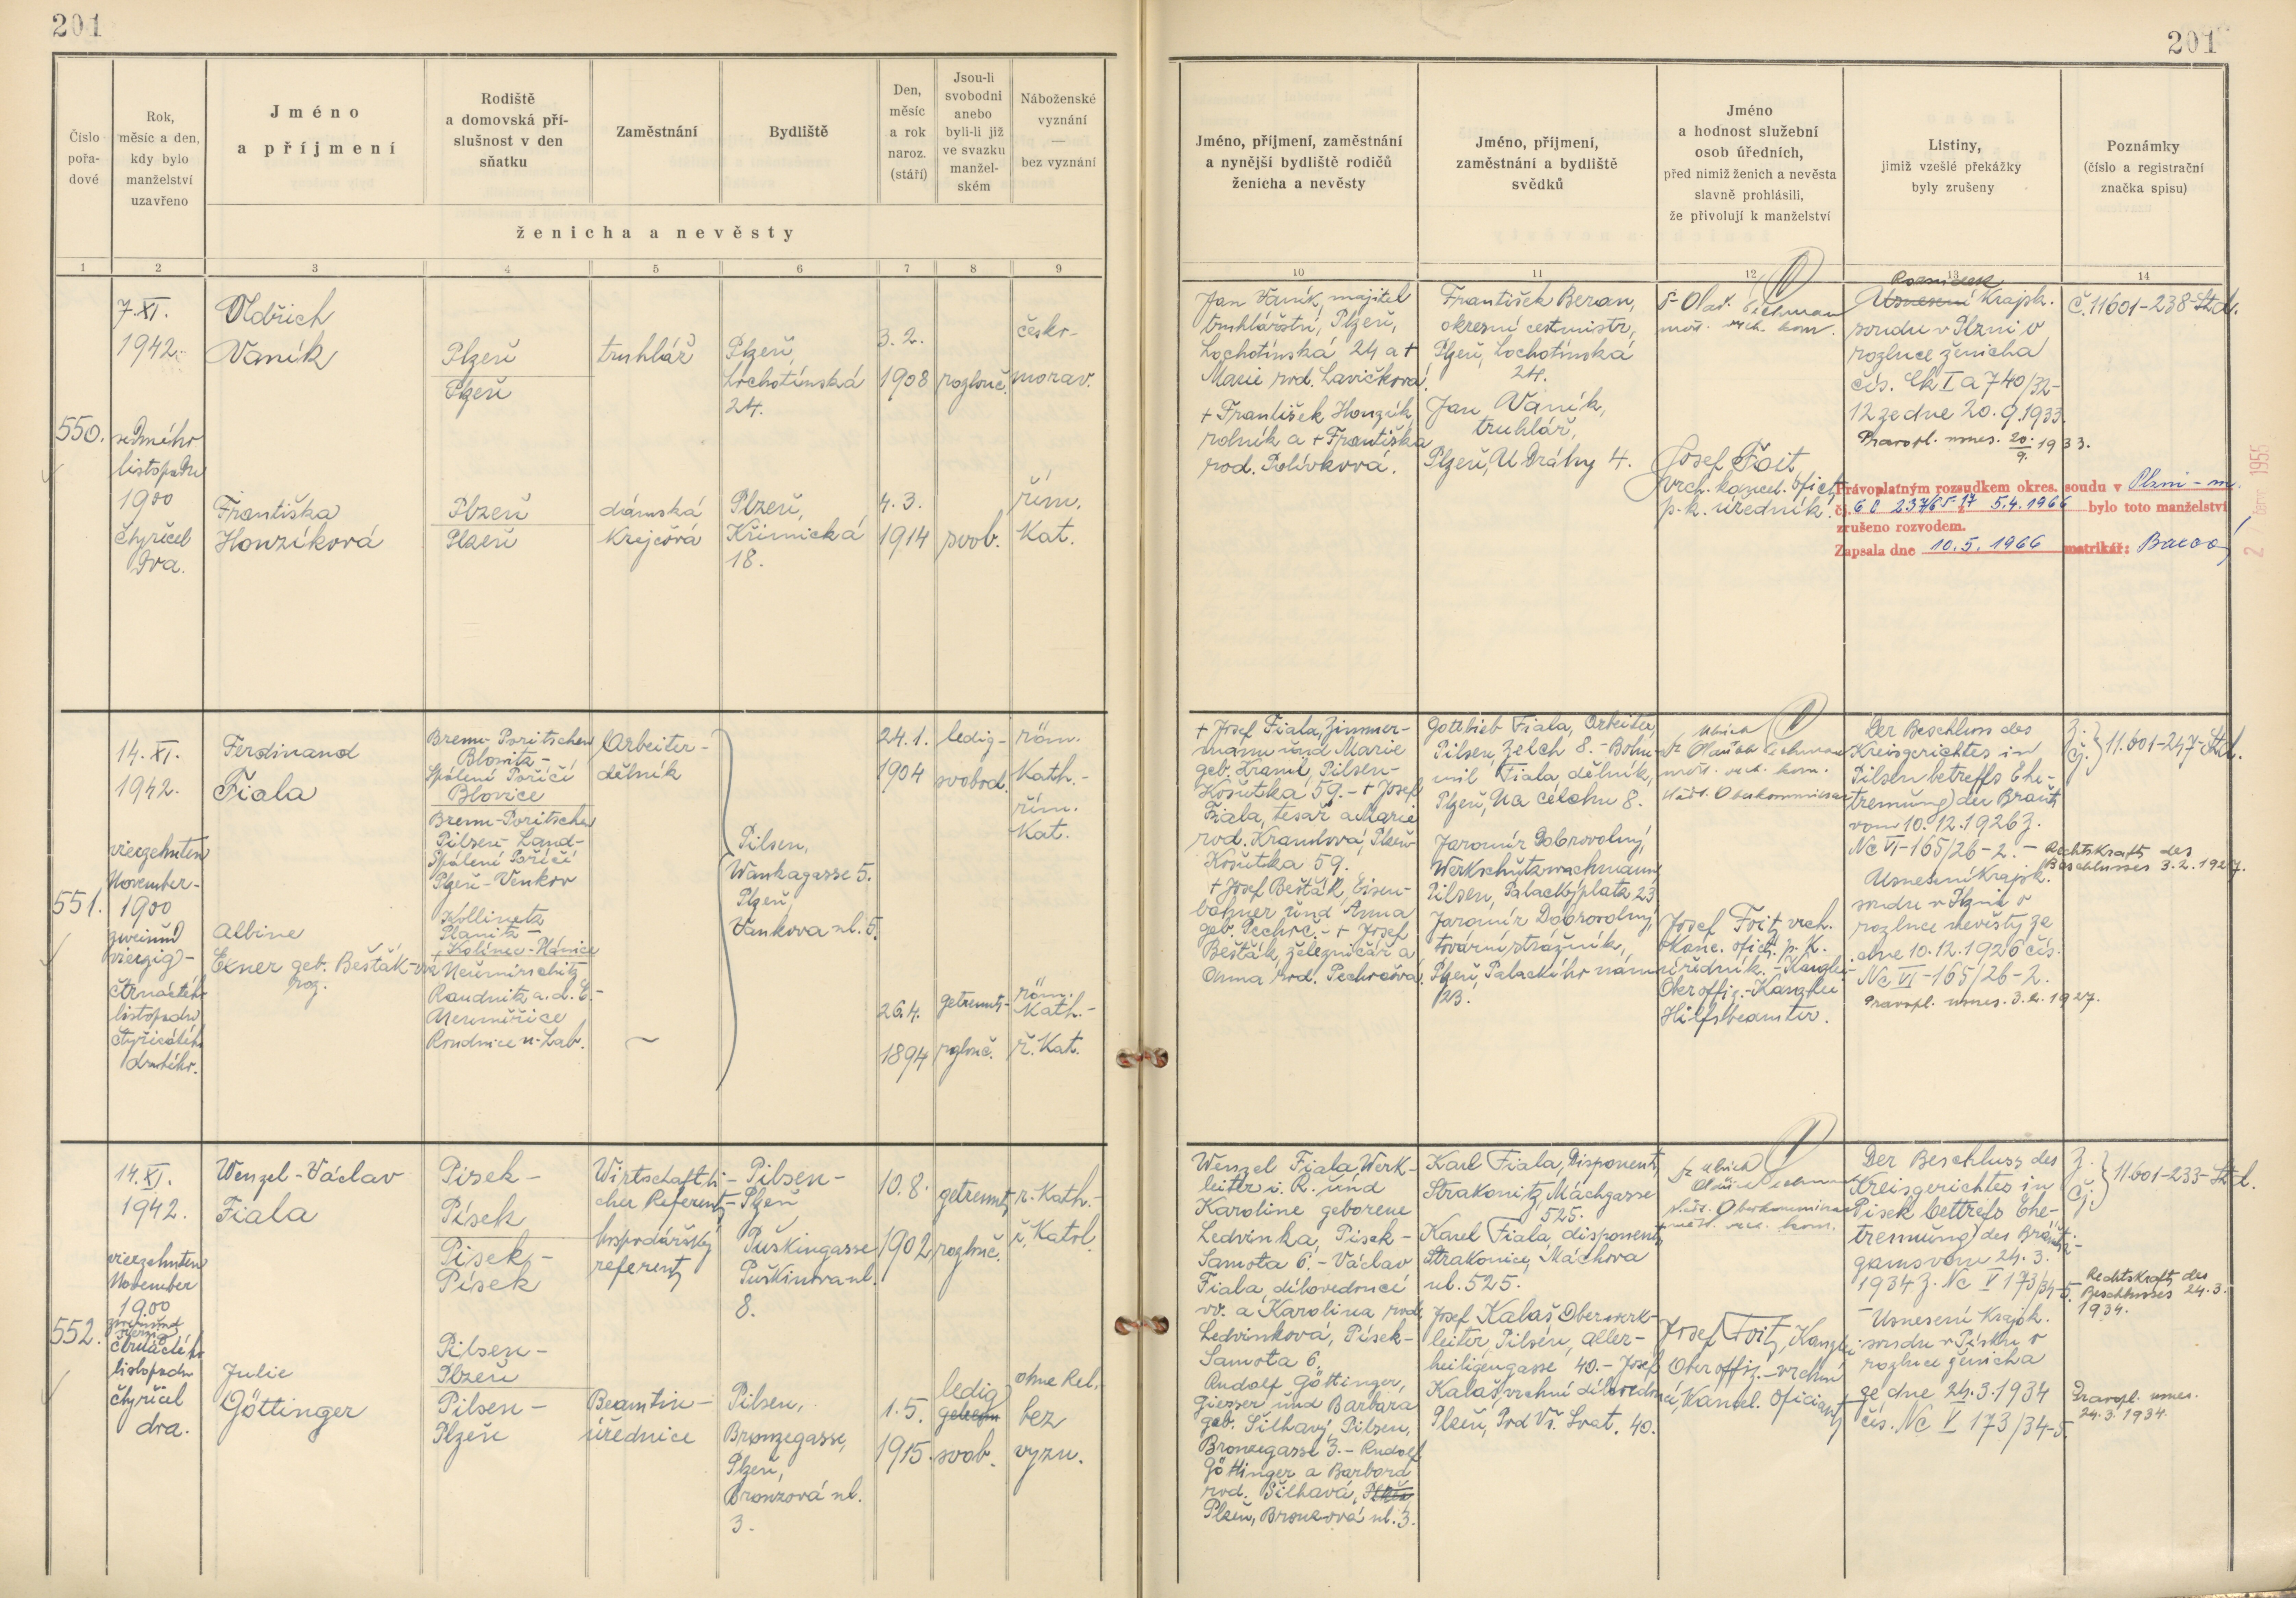 201
201
Číslo
pořa-
dové
Rok,
měsíc a den,
kdy bylo
manželství
uzavřeno
Jméno
a příjmení
Rodiště
a domovská pří-
slušnost v den
sňatku
Zaměstnání
Bydliště
Den,
měsíc
a rok
naroz.
(stáří)
Jsou-li
svobodni
anebo
byli-li již
ve svazku
manžel-
ském
Náboženské
vyznání
—
bez vyznání
ženicha a nevěsty
1 2 3 4 5 6 7 8 9
Jméno, příjmení, zaměstnání
a nynější bydliště rodičů
ženicha a nevěsty
Jméno, příjmení,
zaměstnání a bydliště
svědků
Jméno
a hodnost služební
osob úředních,
před nimiž ženich a nevěsta
slavně prohlásili,
že přivolují k manželství
Listiny,
jimiž vzešlé překážky
byly zrušeny
Poznámky
(číslo a registrační
značka spisu)
10 11 12 13 14
550.
7. XI.
1942.
sedmého
listopadu
1900
čtyřicet
dva.
Oldřich
Vaník
Plzeň
Plzeň
truhlář
Plzeň,
Lochotínská
24.
3. 2.
1908
rozlouč.
česko-
morav.
Františka
Honzíková
Plzeň
Plzeň
dámská
krejčová
Plzeň,
Křimická
18.
4. 3.
1914
svob.
řím.
kat.
Jan Vaník, majitel
truhlářství, Plzeň,
Lochotínská 24 a +
Marie rod. Lavičková.
+ František Honzík,
rolník a + Františka
rod. Polívková.
František Beran,
okresní cestmistr,
Plzeň, Lochotínská
24.
Jan Vaník,
truhlář,
Plzeň, U Dráhy 4.
Josef Foit,
vrch. kancel. ofic.
p. k. úředník.
Rozsudek
Usnesení Krajsk.
soudu v Plzni o
rozluce ženicha
čís. Ck I a 740/32-
12 ze dne 20. 9. 1933.
Pravopl. usnes. 20. 9. 1933.
Č. 11601-238-Std.
Právoplatným rozsudkem okres. soudu v Plzni - m.
čj. 6 C 237/65-17 z 5.4.1966 bylo toto manželství
zrušeno rozvodem.
Zapsala dne 10.5.1966 matrikář:
551.
14. XI.
1942.
vierzehnten
November-
1900
zweiund
vierzig-
čtrnáctého
listopadu
čtyřicátého
druhého.
Ferdinand
Fiala
Brenn-Poritschen
Blowitz-
Spálené Poříčí
Blovice
Brenn-Poritschen
Pilsen-Land-
Spálené Poříčí
Plzeň-Venkov
Arbeiter-
dělník
24. 1.
1904
ledig-
svobod.
röm.
kath.-
řím.
kat.
Pilsen,
Wankagasse 5.
Plzeň,
Vankova ul. 5.
Albine
Exner geb. Bešták-ová
roz.
Kollinetz
Planitz-
Kolinec-Plánice
Raudnitz a. d. E.-
Roudnice n. Lab.
26.4.
1894
getrennt-
rozlouč.
röm.
kath.-
ř. kat.
+ Josef Fiala, Zimmer-
mann und Marie
geb. Kraml, Pilsen-
Košutka 59. - + Josef
Fiala, tesař a Marie
rod. Kramlová, Plzeň-
Košutka 59.
+ Josef Bešták, Eisen-
bahner und Anna
geb. Pechoč. - + Josef
Bešták, železničář a
Anna rod. Pechočová.
Gottlieb Fiala, Arbeiter,
Pilsen, Zelch 8. - Bohu-
mil Fiala dělník,
Plzeň, Na celchu 8.
Jaromír Dobrovolný,
Werkschutzwachmann
Pilsen, Palackýplatz 23
Jaromír Dobrovolný,
tovární strážník,
Plzeň, Palackého nám.
23.
Josef Foit, vrch.
kanc. ofic. p. k.
úředník. - Kanzlei-
Oberoffiz. - Kanzlei
Hilfsbeamter.
Der Beschluss des
Kreisgerichtes in
Pilsen betreffs Ehe-
trennung der Braut
vom 10. 12. 1926 Z.
Nc VI-165/26-2. -
Rechtskraft des
Beschlusses 3. 2. 1927.
Usnesení Krajsk.
soudu v Plzni o
rozluce nevěsty ze
dne 10. 12. 1926 čís.
Nc VI-165/26-2.
Pravopl. usnes. 3. 2. 1927.
Z.
Čj. } 11.601-247-Std.
552.
14. XI.
1942.
vierzehnten
November
1900
zweiund
vierzig
čtrnáctého
listopadu
čtyřicet
dva.
Wenzel-Václav
Fiala
Pisek-
Písek
Pisek-
Písek
Wirtschaftli-
cher Referent-
hospodářský
referent
Pilsen-
Plzeň
Puškingasse
Puškinova ul.
8.
10. 8.
1902
getrennt,
rozlouč.
r. Kath.-
ř. Katol.
Julie
Göttinger
Pilsen-
Plzeň
Pilsen-
Plzeň
Beamtin-
úřednice
Pilsen,
Bronzegasse,
Plzeň,
Bronzová ul.
3.
1. 5.
1915.
ledig
svob.
ohne Rel.
bez
vyzn.
Wenzel Fiala, Werk-
leiter i. R. und
Karoline geborene
Ledvinka, Pisek-
Samota 6. - Václav
Fiala, dílovedoucí
vv. a Karolina rod.
Ledvinková, Písek-
Samota 6.
Rudolf Göttinger,
Giesser und Barbara
geb. Šilhavý, Pilsen,
Bronzegasse 3. - Rudolf
Göttinger a Barbora
rod. Šilhavá, Plzeň
Plzeň, Bronzová ul. 3.
Karl Fiala, Disponent,
Strakonitz, Máchgasse
525.
Karel Fiala, disponent,
Strakonice, Máchova
ul. 525.
Josef Kalaš, Oberwerk-
leiter, Pilsen, Aller-
heiligengasse 40. - Josef
Kalaš, vrchní dílovedou-
cí, Plzeň, Pod Vš. Svat. 40.
Josef Foit, Kanzlei-
Oberoffiz. - vrchní
kancel. oficiant
Der Beschluss des
Kreisgerichtes in
Pisek bettrefs Ehe-
trennung des Bräuti-
gams vom 24. 3.
1934 Z. Nc V 173/34-5.
Rechtskraft des
Beschlusses 24. 3.
1934.
- Usnesení Krajsk.
soudu v Písku o
rozluce ženicha
ze dne 24. 3. 1934
čís. Nc V 173/34-5.
Pravopl. usnes.
24. 3. 1934.
Z.
Čj. } 11.601-233-Std.